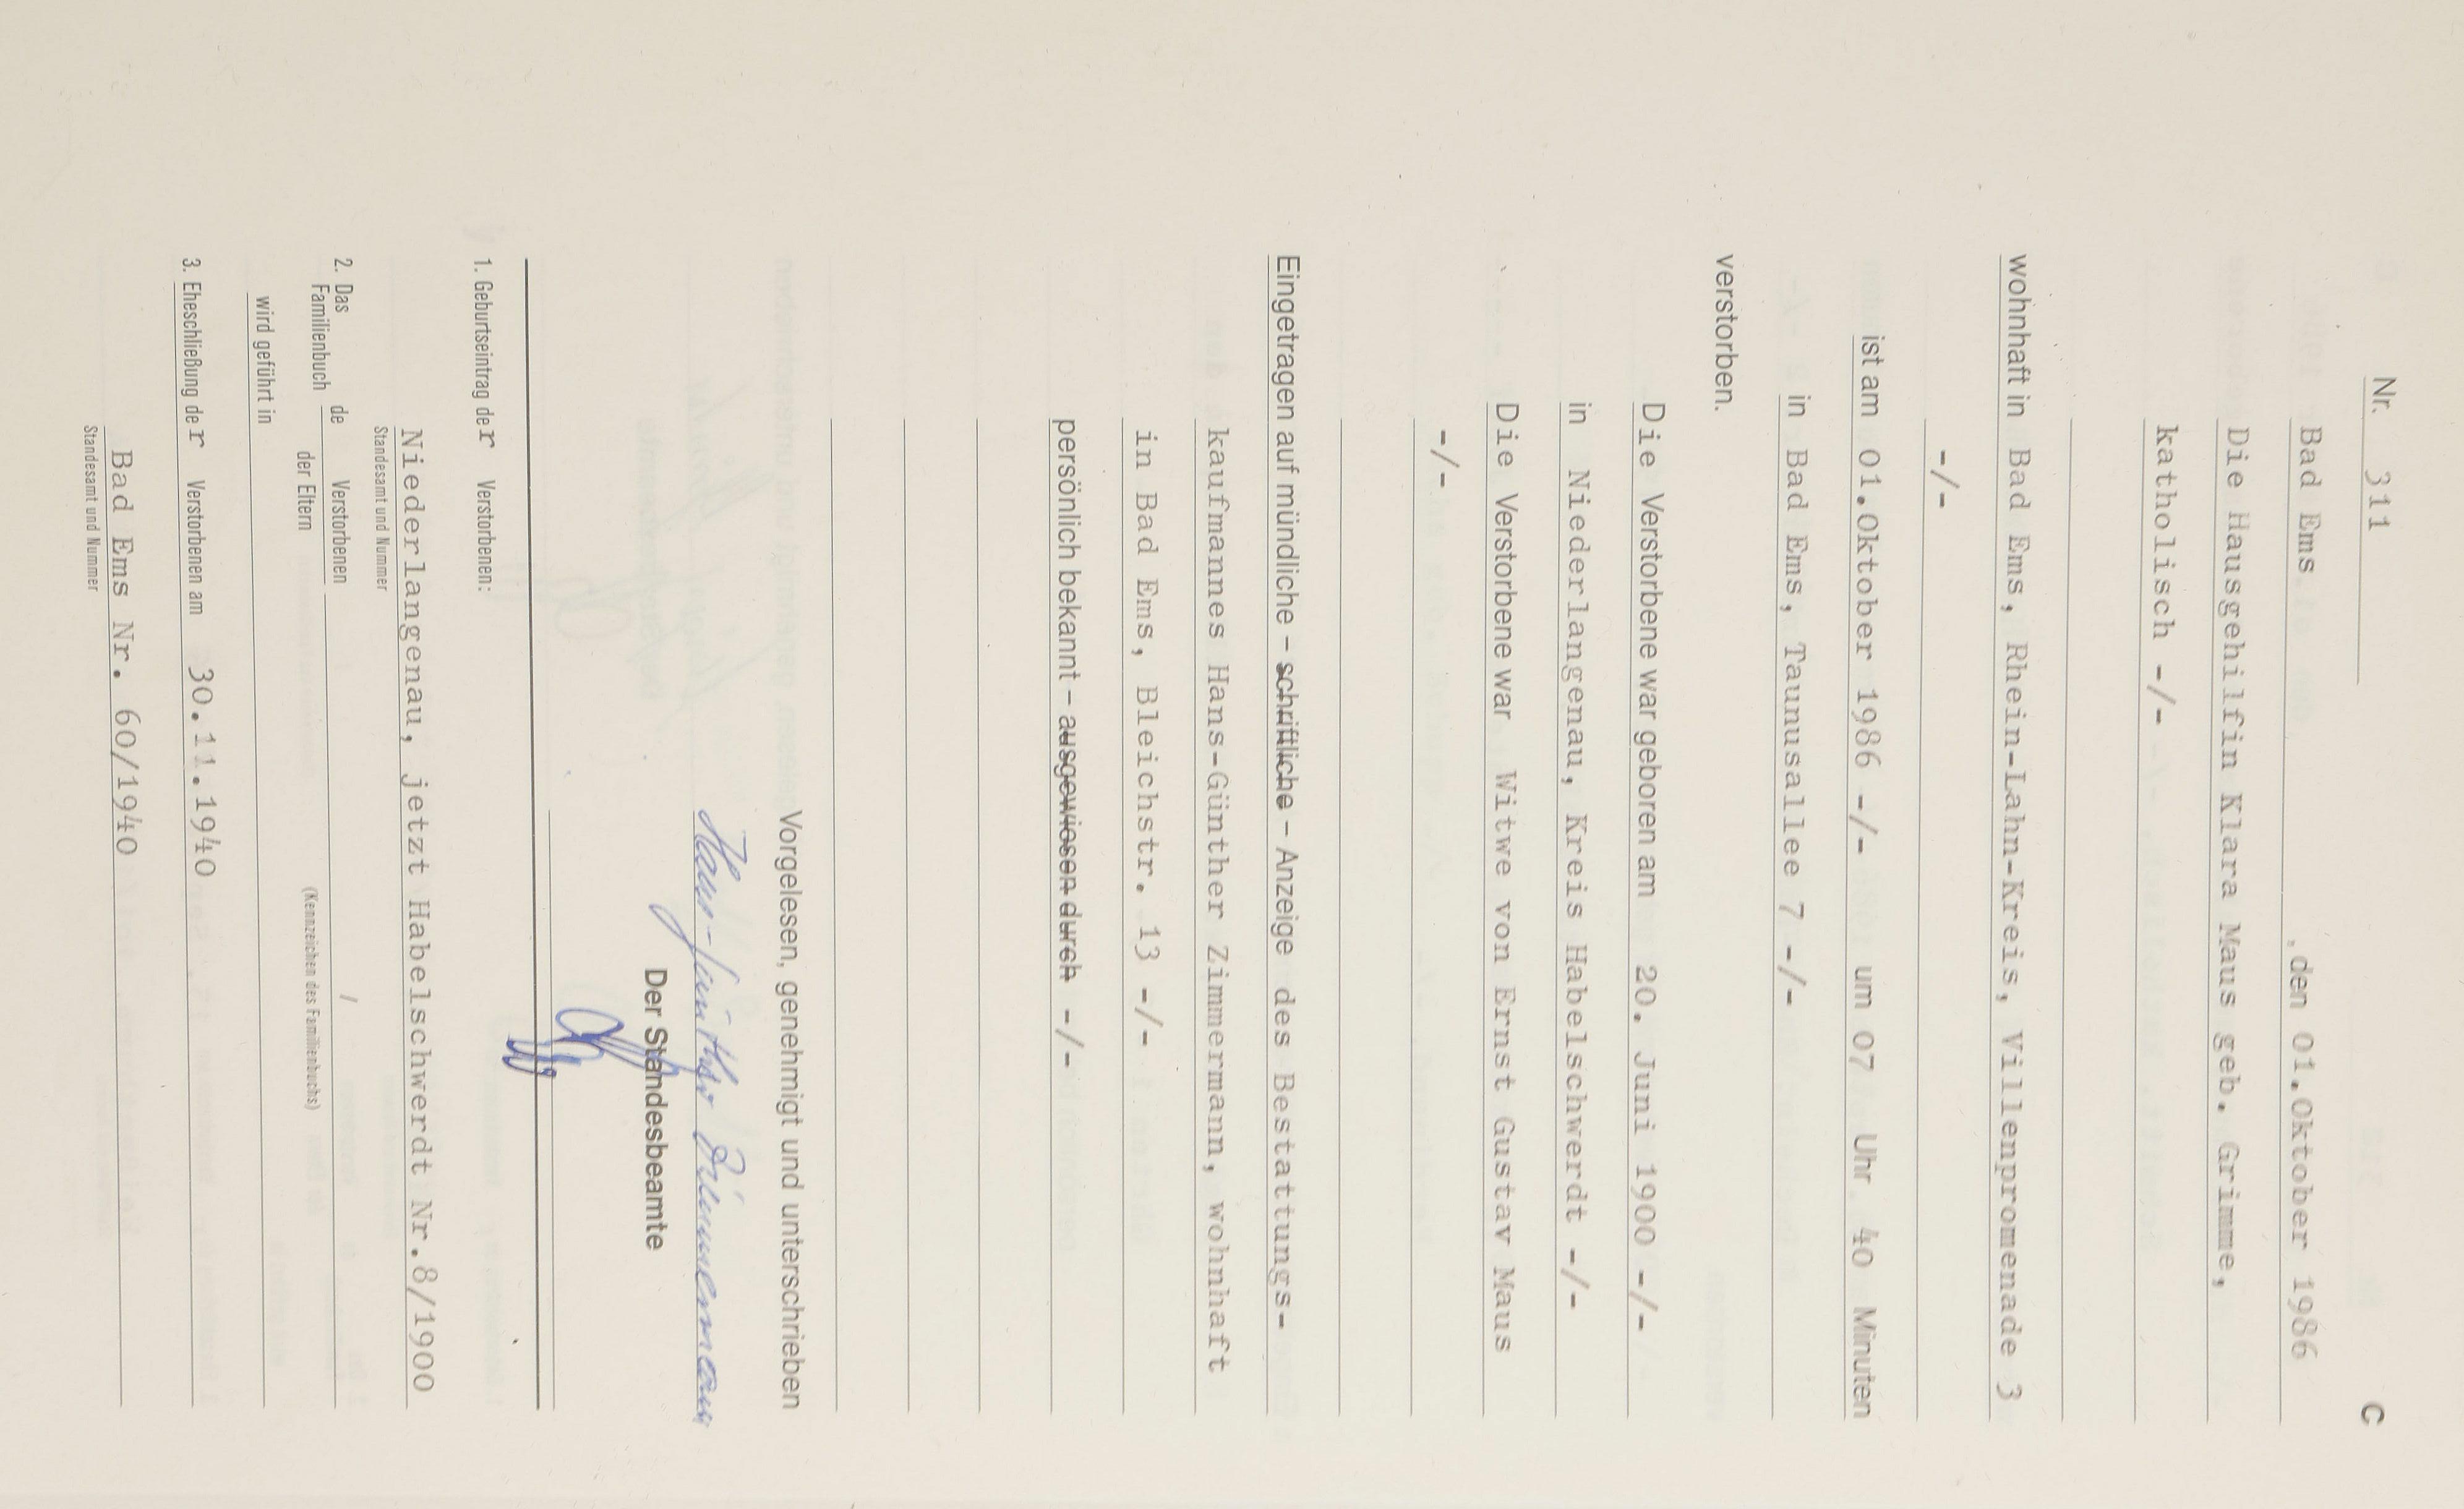 C
Nr. 311
Bad Ems , den 01.Oktober 1986
Die Hausgehilfin Klara Maus geb. Grimme,
katholisch -/-
wohnhaft in Bad Ems, Rhein-Lahn-Kreis, Villenpromenade 3
-/-
ist am 01.Oktober 1986 -/- um 07 Uhr 40 Minuten
in Bad Ems, Taunusallee 7 -/-
verstorben.
Die Verstorbene war geboren am 20. Juni 1900 -/-
in Niederlangenau, Kreis Habelschwerdt -/-
Die Verstorbene war Witwe von Ernst Gustav Maus
-/-
Eingetragen auf mündliche – schriftliche – Anzeige des Bestattungs-
kaufmannes Hans-Günther Zimmermann, wohnhaft
in Bad Ems, Bleichstr. 13 -/-
persönlich bekannt – ausgewiesen durch -/-
Vorgelesen, genehmigt und unterschrieben
Hans-Günther Zimmermann
Der Standesbeamte
1. Geburtseintrag der Verstorbenen:
Niederlangenau, jetzt Habelschwerdt Nr.8/1900
Standesamt und Nummer
2. Das Familienbuch de Verstorbenen /
der Eltern (Kennzeichen des Familienbuchs)
wird geführt in
3. Eheschließung der Verstorbenen am 30.11.1940
Bad Ems Nr. 60/1940
Standesamt und Nummer